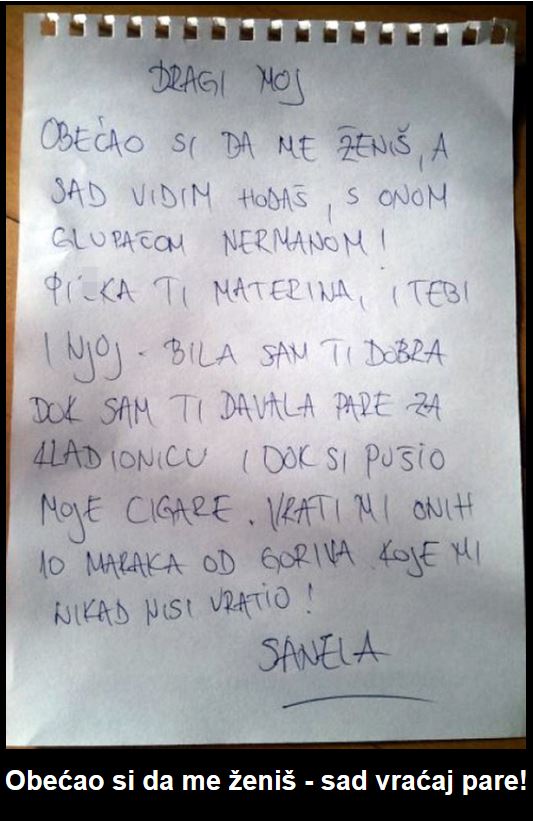 DRAGI MOJ
OBEĆAO SI DA ME ŽENIŠ, A
SAD VIDIM HODAŠ, S ONOM
GLUPAČOM NERMANOM!
TI MATERINA, I TEBI
I NJOJ - BILA SAM TI DOBRA
DOK SAM TI DAVALA PARE ZA
KLADIONICU I DOK SI PUŠIO
MOJE CIGARE. VRATI MI ONIH
10 MARAKA OD GORIVA KOJE MI
NIKAD NISI VRATIO!
SANELA
Obećao si da me ženiš - sad vraćaj pare!